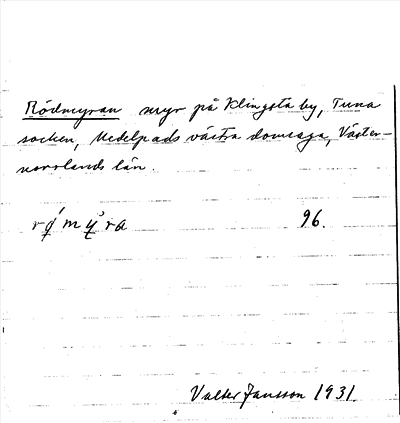 Rödmyran myr på Klingsta by, Tuna
socken, Medelpads västra domsaga, Väster-
norrlands län.
rǿmỳra 96.
Valter Jansson 1931.